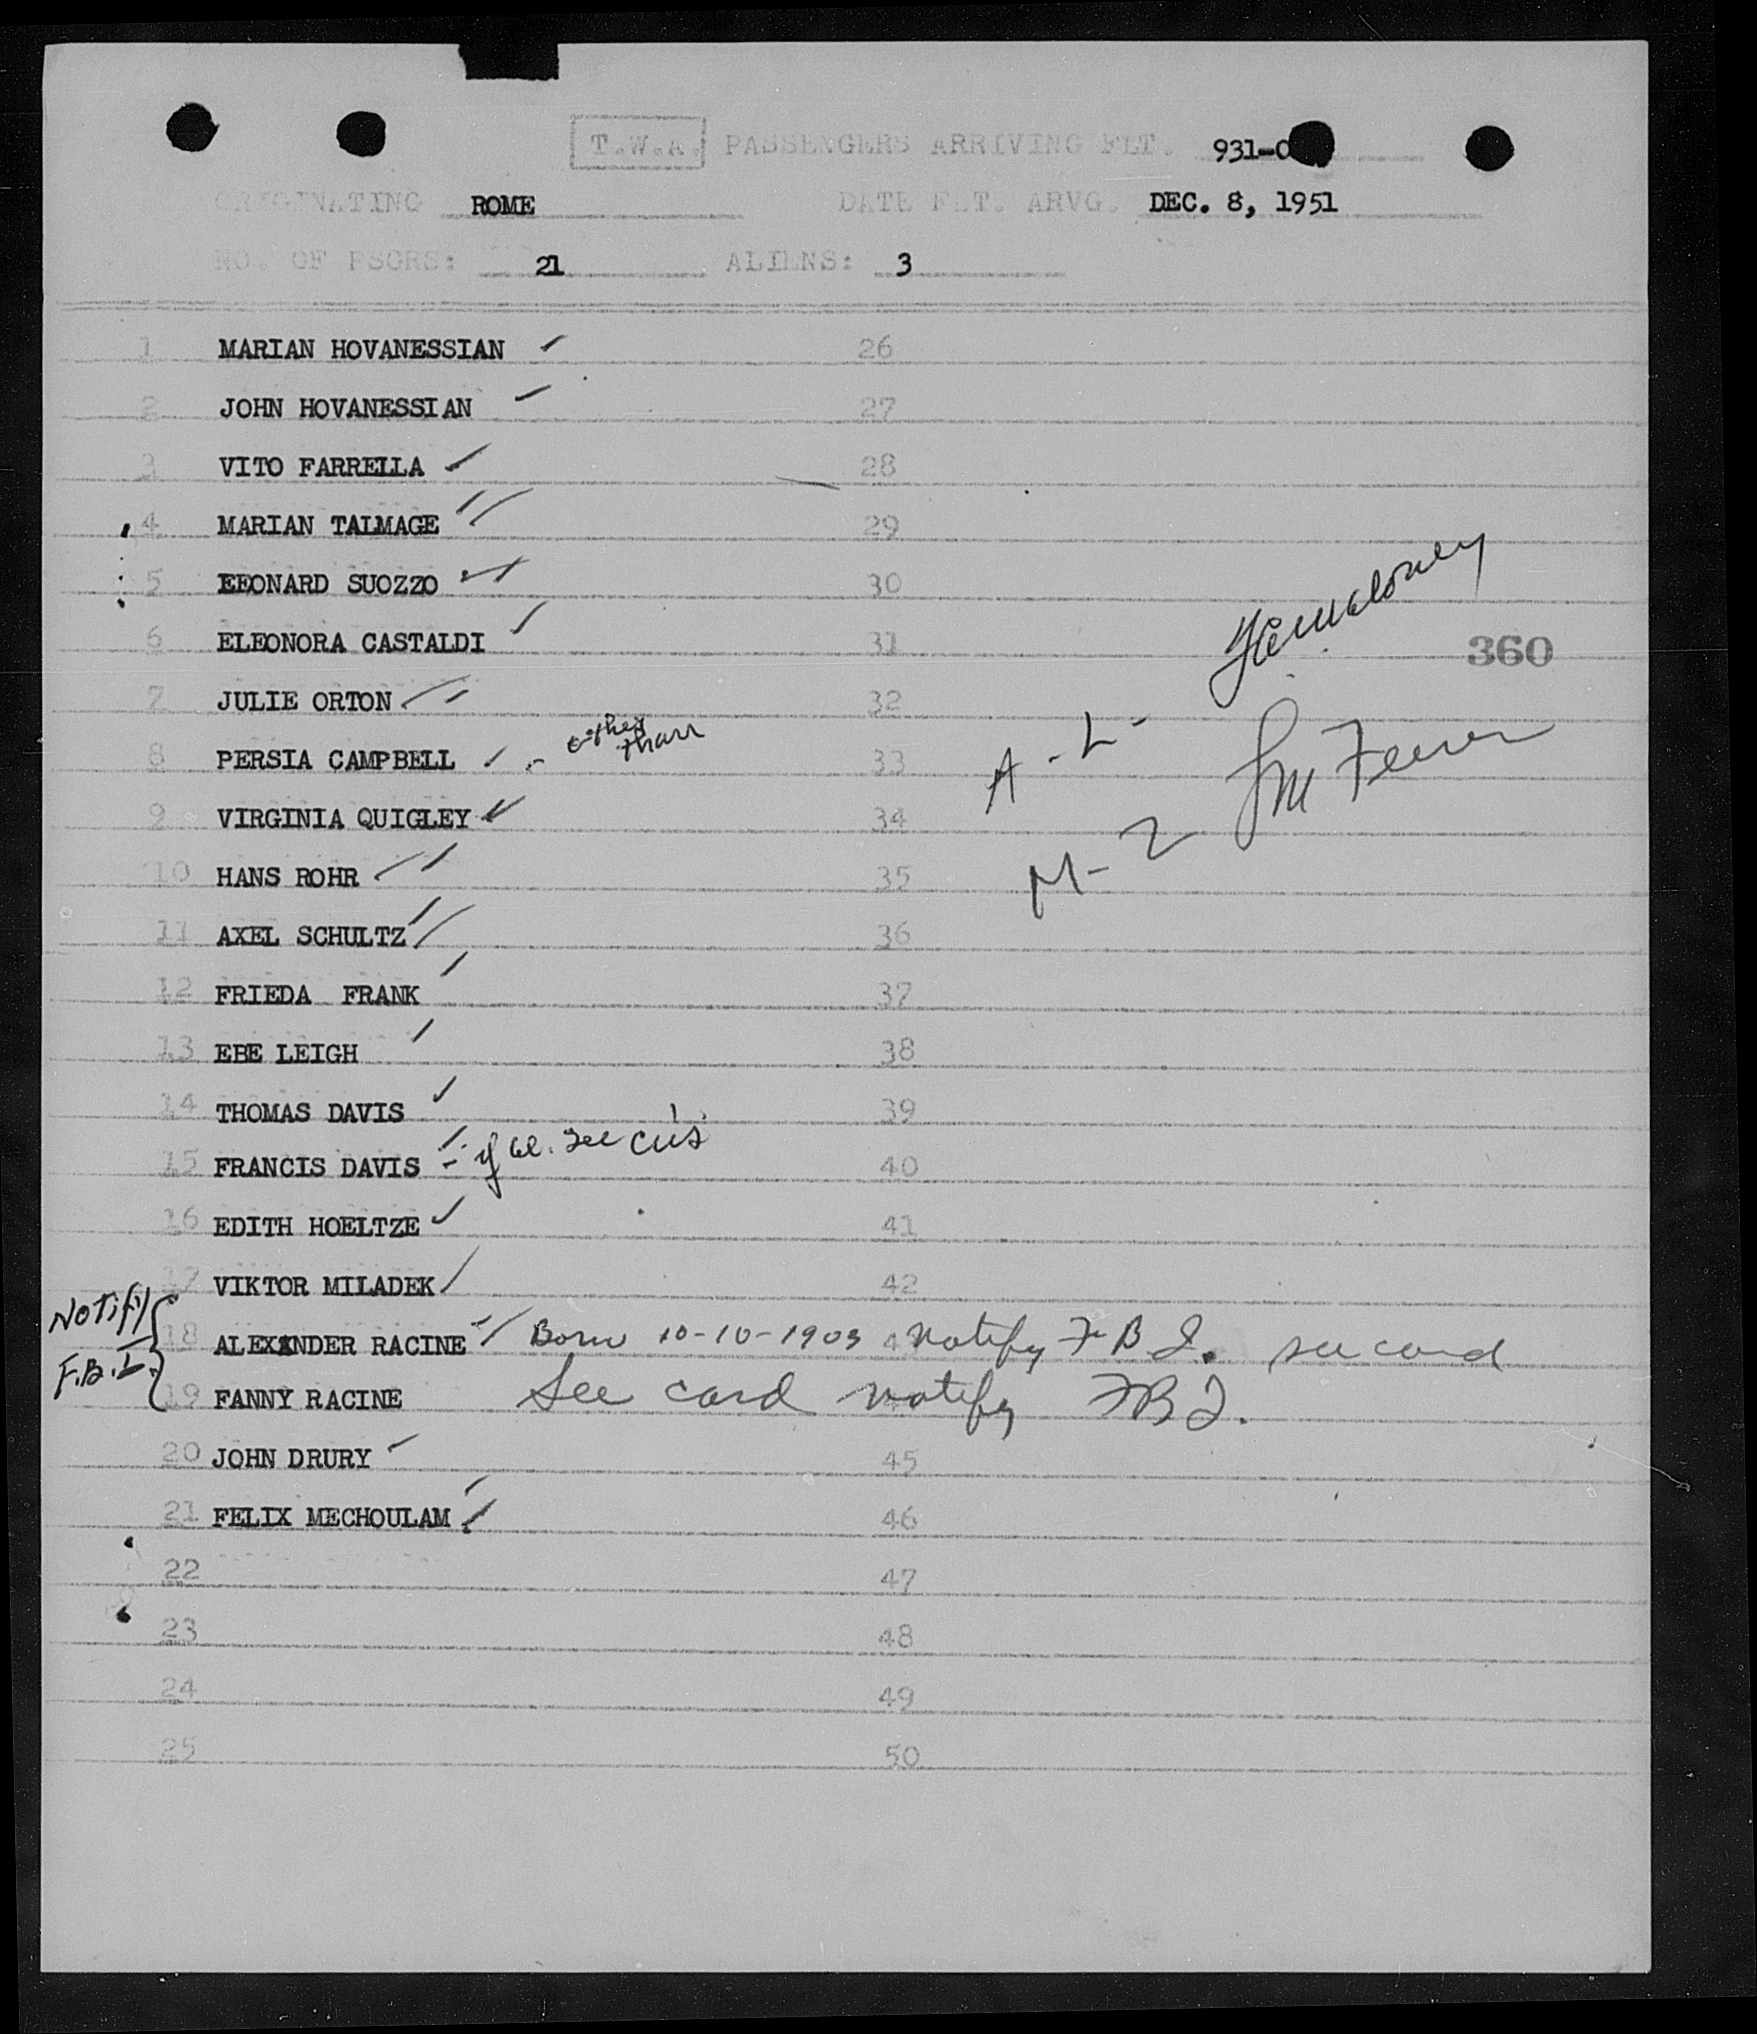 T.W.A. PASSENGERS ARRIVING FLT. 931-0
ORIGINATING ROME DATE FLT. ARVG. DEC. 8, 1951
NO. OF PSGRS: 21 ALIENS: 3
1 MARIAN HOVANESSIAN 26
2 JOHN HOVANESSIAN 27
3 VITO FARRELLA 28
4 MARIAN TALMAGE 29
5 LEONARD SUOZZO 30
6 ELEONORA CASTALDI 31
360
7 JULIE ORTON 32
8 PERSIA CAMPBELL - other than 33
A - L -
9 VIRGINIA QUIGLEY 34
M - Z
10 HANS ROHR 35
11 AXEL SCHULTZ 36
12 FRIEDA FRANK 37
13 EBE LEIGH 38
14 THOMAS DAVIS 39
15 FRANCIS DAVIS - if see 40
16 EDITH HOELTZE 41
17 VIKTOR MILADEK 42
Notify F.B.I.
18 ALEXANDER RACINE Born 10-10-1903 Notify FBI. see card
19 FANNY RACINE See card notify FBI.
20 JOHN DRURY 45
21 FELIX MECHOULAM 46
22 47
23 48
24 49
25 50